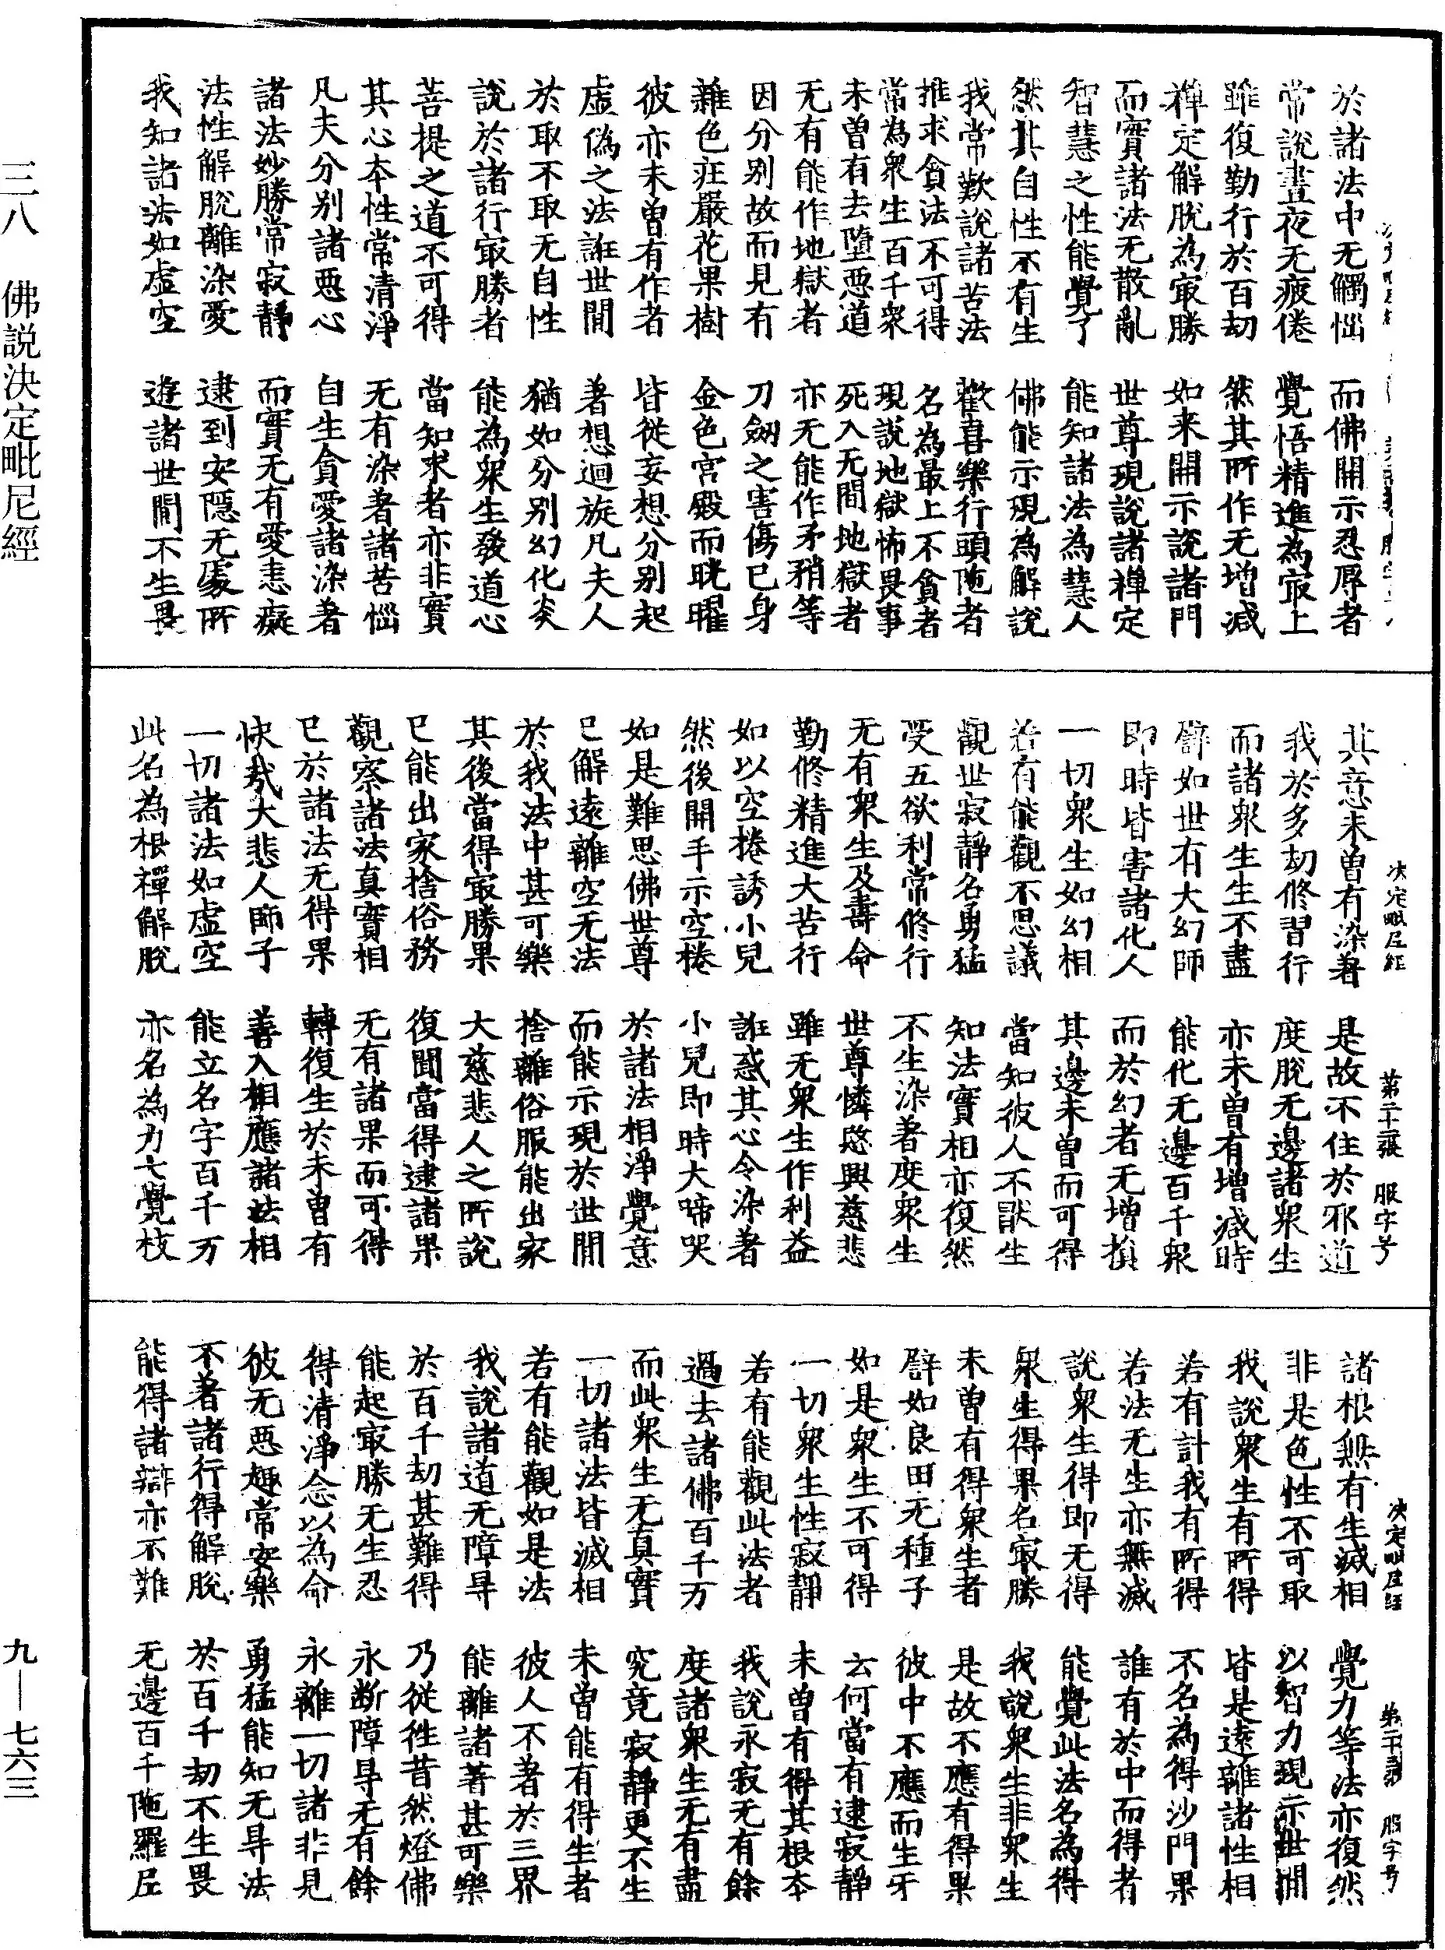 於諸法中无觸惱　而佛開示忍辱者
常說晝夜无疲倦　覺悟精進為㝡上
雖復勤行於百劫　然其所作无增減
禪定解脫為㝡勝　如来開示說諸門
而實諸法无散亂　世尊現說諸禪定
智慧之性能覺了　能知諸法為慧人
然其自性不有生　佛能示現為解說
我常歎說諸苦法　歡喜樂行頭陁者
推求貪法不可得　名為最上不貪者
常為衆生百千衆　現說地獄怖畏事
未曽有去墮惡道　死入无間地獄者
无有能作地獄者　亦无能作矛矟等
因分別故而見有　刀劒之害傷已身
雜色莊嚴花果樹　金色宮殿而晄曜
彼亦未曽有作者　皆從妄想分別起
虛偽之法誑世間　著想迴旋凡夫人
於取不取无自性　猶如分別幻化炎
說於諸行㝡勝者　能為衆生發道心
菩提之道不可得　當知求者亦非實
其心本性常清淨　无有染著諸苦惱
凡夫分別諸惡心　自生貪愛諸染著
諸法妙勝常寂靜　而實无有愛恚癡
法性解脫離染愛　逮到安隱无處所
我知諸法如虛空　遊諸世間不生畏
其意未曽有染著　是故不住於邪道
我於多劫修習行　度脫无邊諸衆生
而諸衆生生不盡　亦未曽有增減時
譬如世有大幻師　能化无邊百千衆
即時皆害諸化人　而於幻者无增損
一切衆生如幻相　其邊未曽而可得
若有能觀不思議　當知彼人不猒生
觀世寂靜名勇猛　知法實相亦復然
受五欲利常修行　不生染著度衆生
无有衆生及壽命　世尊憐愍興慈悲
勤修精進大苦行　雖无衆生作利益
如以空捲誘小兒　誑惑其心令染著
然後開手示空捲　小兒即時大啼哭
如是難思佛世尊　於諸法相淨覺意
已解遠離空无法　而能示現於世間
於我法中甚可樂　捨離俗服能出家
其後當得㝡勝果　大慈悲人之所說
已能出家捨俗務　復聞當得逮諸果
觀察諸法真實相　无有諸果而可得
已於諸法无得果　轉復生於未曽有
快哉大悲人師子　善入相應諸法相
一切諸法如虛空　能立名字百千万
此名為根禪解脫　亦名為力七覺枝
決定毗尼經　第二十二張　服字号
諸根無有生滅相　覺力等法亦復然
非是色性不可取　以智力現示世間
我說衆生有所得　皆是遠離諸性相
若有計我有所得　不名為得沙門果
若法无生亦無滅　誰有於中而得者
說衆生得即无得　能覺此法名為得
衆生得果名㝡勝　我說衆生非衆生
未曽有得衆生者　是故不應有得果
譬如良田无種子　彼中不應而生牙
如是衆生不可得　云何當有逮寂靜
一切衆生性寂靜　未曽有得其根本
若有能觀此法者　我說永寂无有餘
過去諸佛百千万　度諸衆生无有盡
而此衆生无真實　究竟寂靜更不生
一切諸法皆滅相　未曽能有得生者
若有能觀如是法　彼人不著於三界
我說諸道无障㝵　能離諸著甚可樂
於百千劫甚難得　乃從徃昔然燈佛
能起㝡勝无生忍　永斷障㝵无有餘
得清淨念以為命　永離一切諸非見
彼无惡趣常安樂　勇猛能知无㝵法
不著諸行得解脫　於百千劫不生畏
能得諸辯亦不難　无邊百千陁羅尼
決定毗尼經　服字号
三八　佛説決定毗尼經
九—七六三